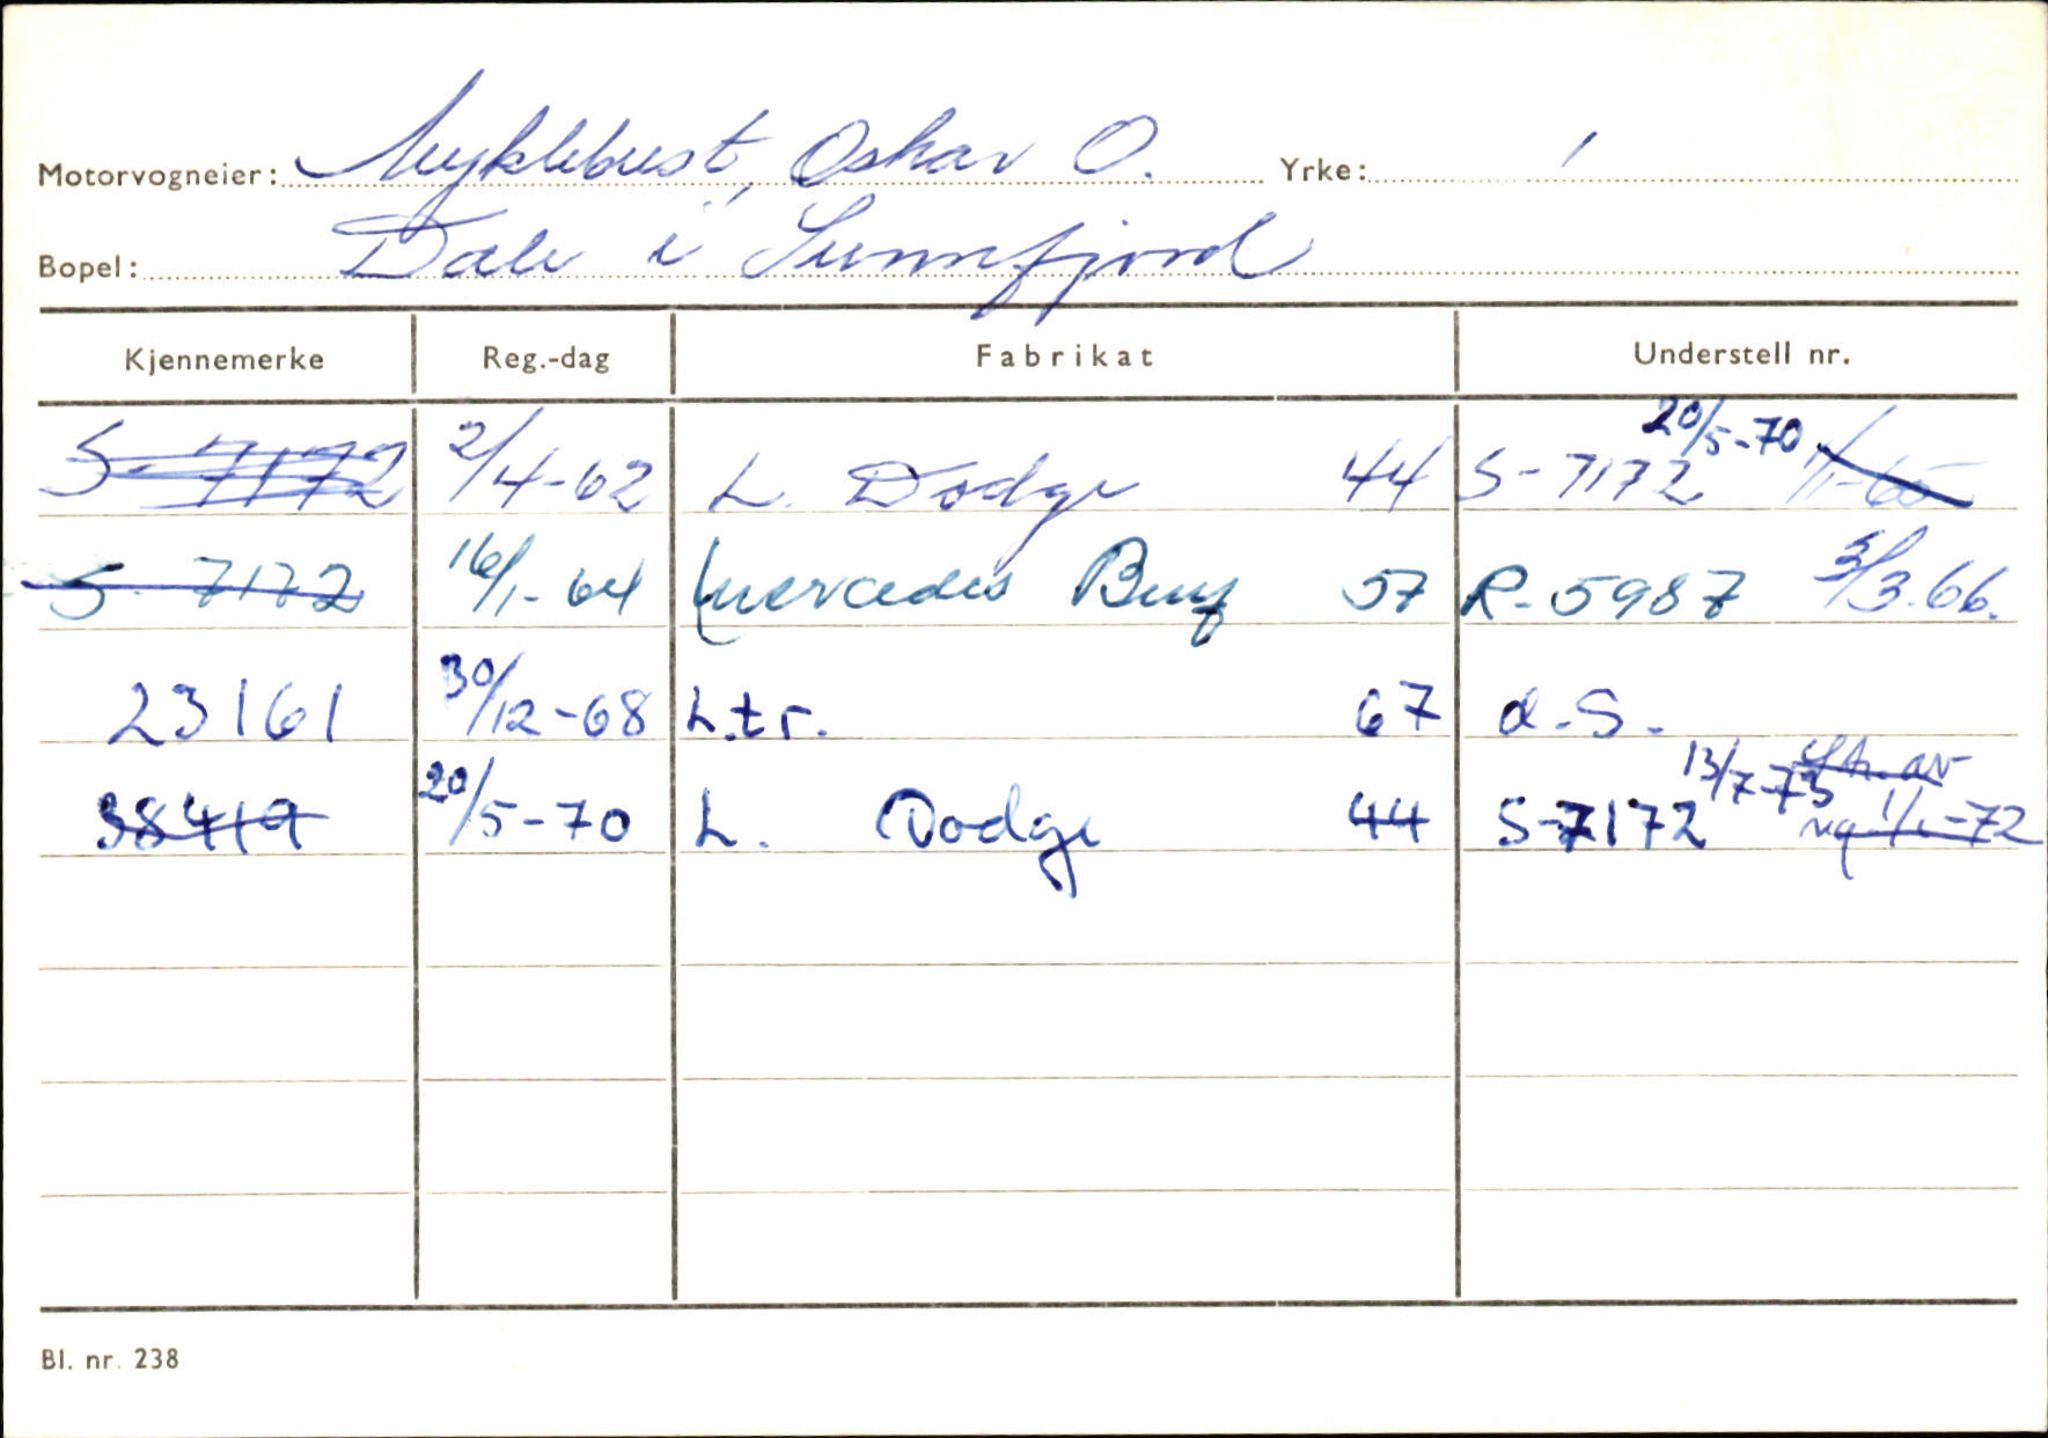 Motorvogneier: Myklebust, Oskar O. Yrke:
Bopel: Dale i Sunnfjord
Kjennemerke Reg.-dag Fabrikat Understell nr.
S-7172 2/4-62 L. Dodge 44 S-7172 20/5-70 1/1-65
S-7172 16/1-64 Mercedes Benz 57 R-5987 3/3.66.
23161 30/12-68 L.tr. 67 d.S.
38419 20/5-70 L. Dodge 44 S-7172 13/7-73 vg 1/1-72
Bl. nr. 238